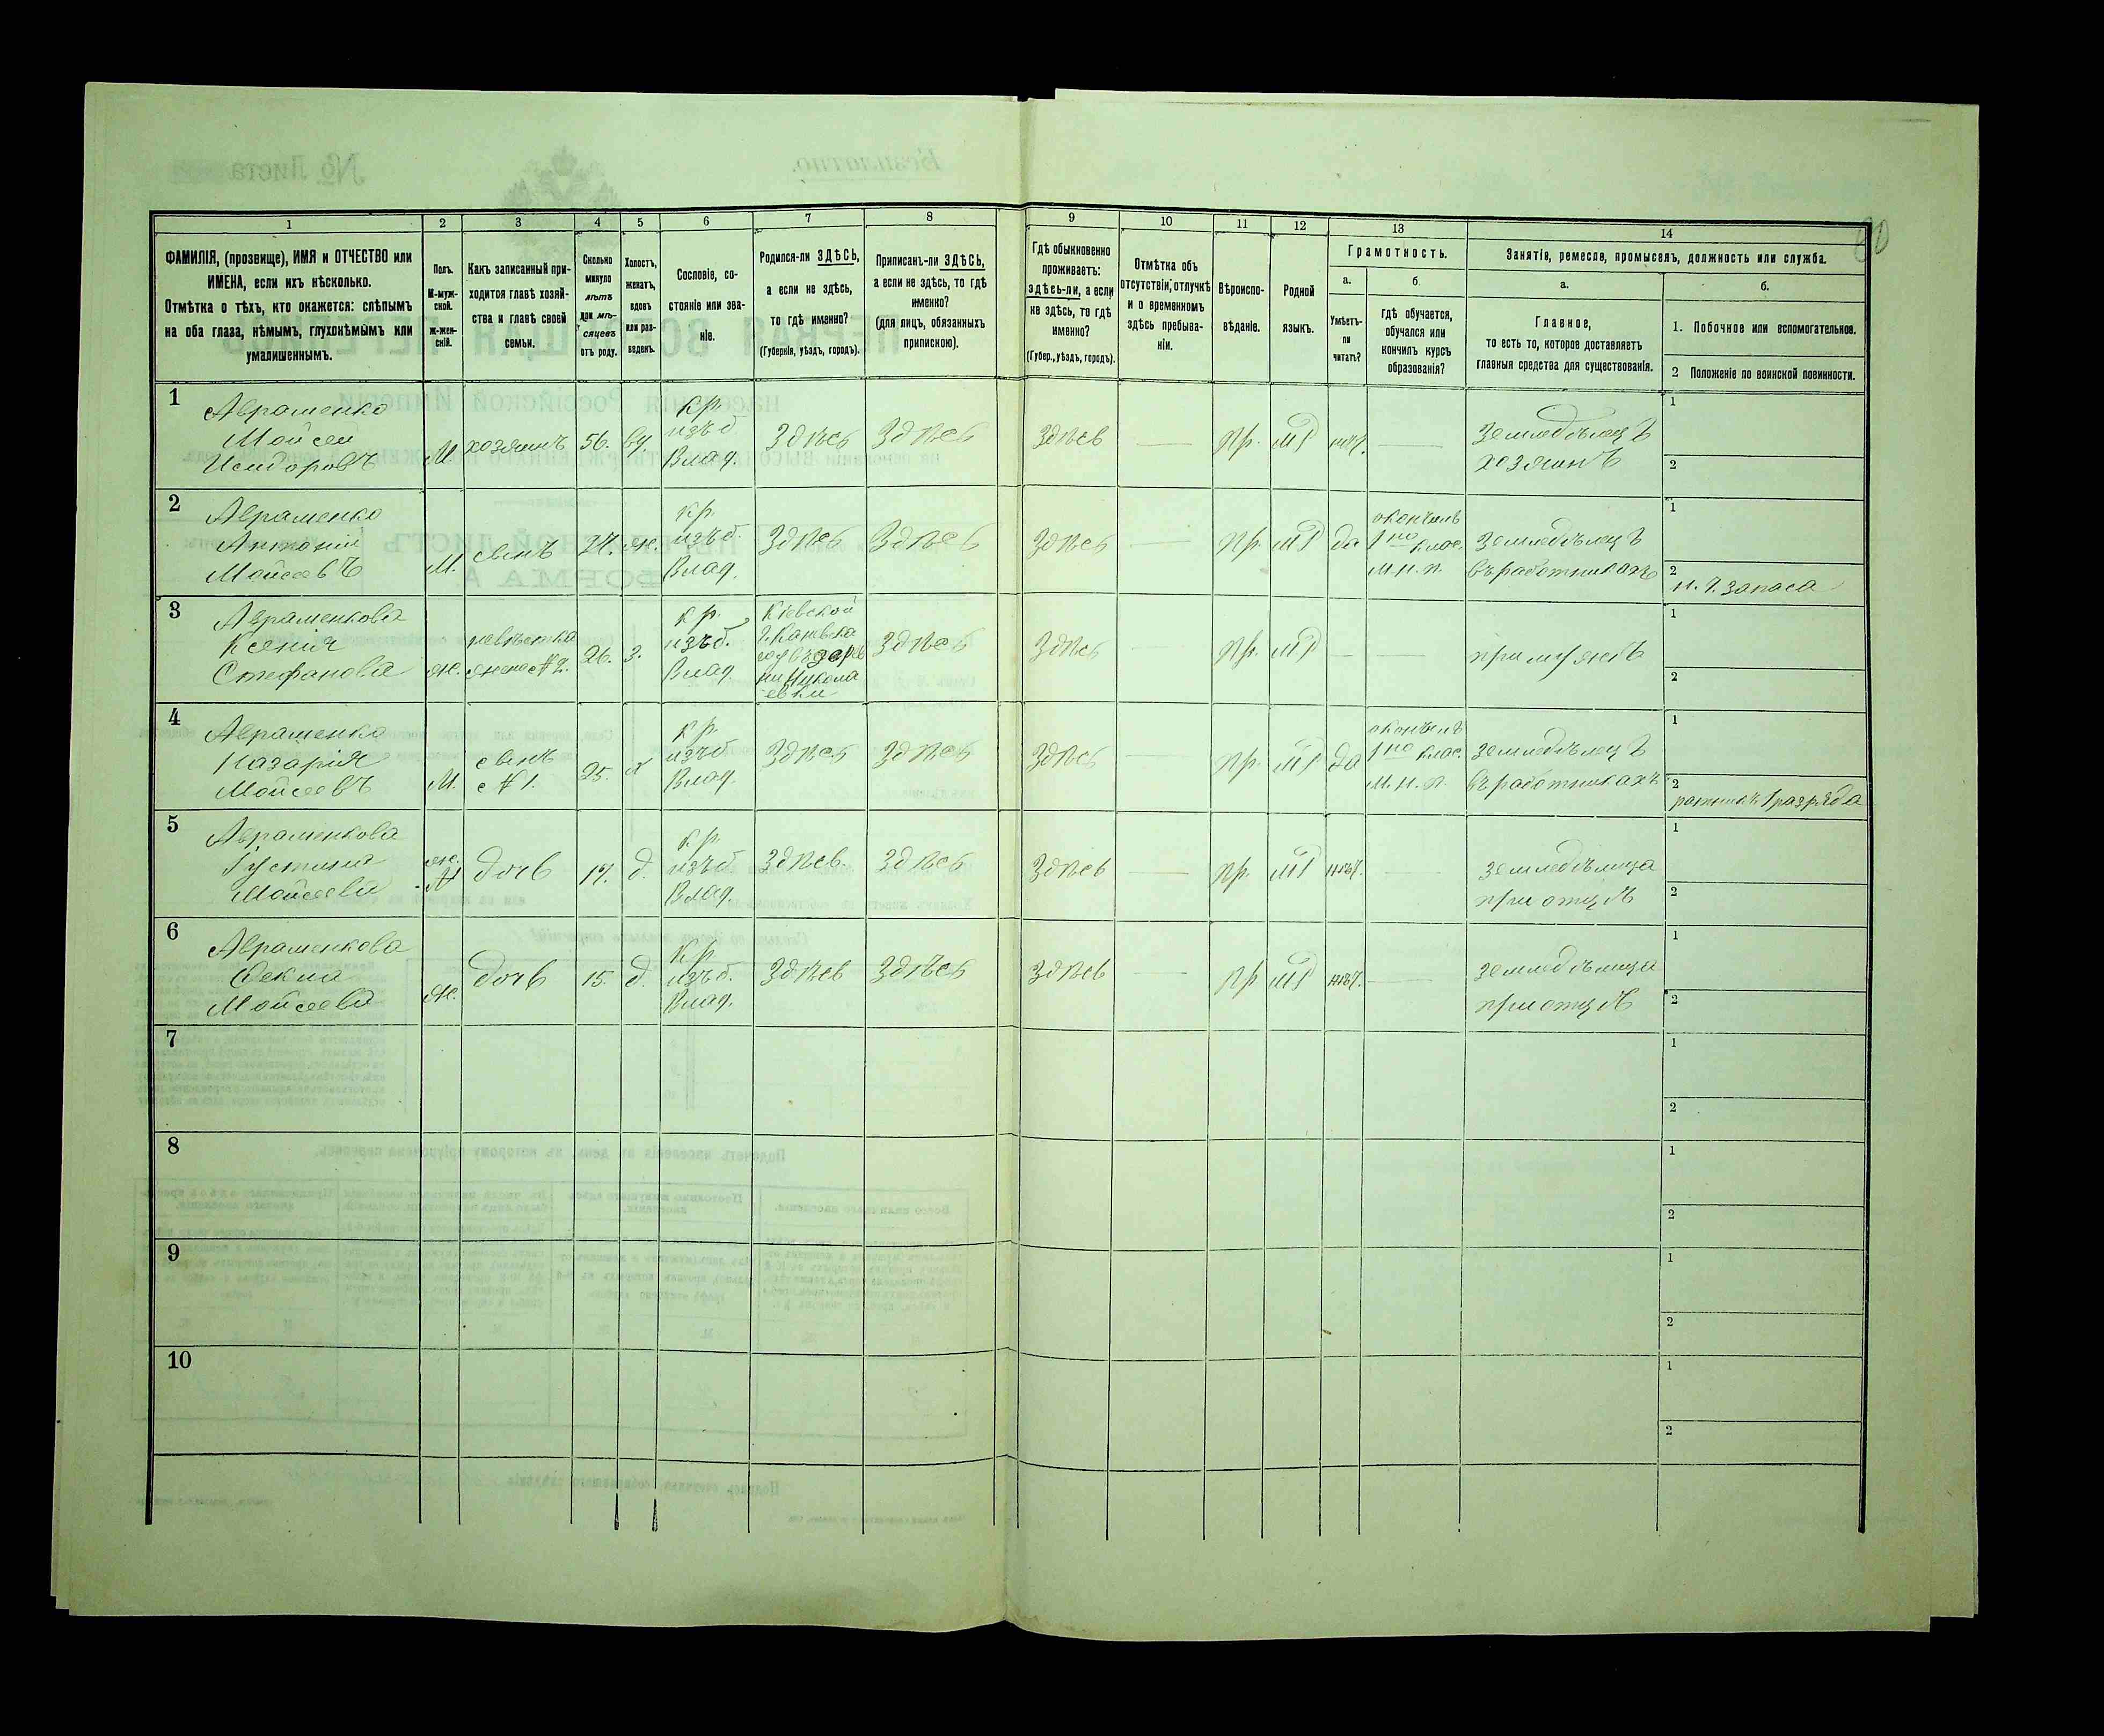 1
2
3
4
5
6
7
8
9
10
11
12
13
14
ФАМИЛІЯ, (прозвище), ИМЯ и ОТЧЕСТВО или
ИМЕНА, если ихъ нѣсколько.
Отмѣтка о тѣхъ, кто окажется: слѣпымъ
на оба глаза, нѣмымъ, глухонѣмымъ или
умалишеннымъ.
Полъ.
М-муж-
ской.
ж-жен-
скій.
Какъ записанный при-
ходится главѣ хозяй-
ства и главѣ своей
семьи.
Сколько
минуло
лѣтъ
или мѣ-
сяцевъ
отъ роду.
Холостъ,
женатъ,
вдовъ
или раз-
веденъ.
Сословіе, со-
стояніе или зва-
ніе.
Родился-ли ЗДѢСЬ,
а если не здѣсь,
то гдѣ именно?
(Губернія, уѣздъ, городъ).
Приписанъ-ли ЗДѢСЬ,
а если не здѣсь, то гдѣ
именно?
(для лицъ, обязанныхъ
припискою).
Гдѣ обыкновенно
проживаетъ:
здѣсь-ли, а если
не здѣсь, то гдѣ
именно?
(Губер., уѣздъ, городъ).
Отмѣтка объ
отсутствіи, отлучкѣ
и о временномъ
здѣсь пребыва-
ніи.
Вѣроиспо-
вѣданіе.
Родной
языкъ.
Грамотность.
а.
б.
Умѣетъ-
ли
читать?
гдѣ обучается,
обучался или
кончилъ курсъ
образованія?
Занятіе, ремесло, промыселъ, должность или служба.
а.
б.
Главное,
то есть то, которое доставляетъ
главныя средства для существованія.
1. Побочное или вспомогательное.
2 Положеніе по воинской повинности.
1
Авраменко
Мойсей
Исидоровъ
М
хозяинъ
56.
вд
кр.
изъ б.
Влад.
Здѣсь
Здѣсь
Здѣсь
—
пр.
мр
нѣт.
—
Земледѣлецъ
хозяинъ
1
2
2
Авраменко
Антоній
Мойсеевъ
М.
сынъ
27.
ж.
кр.
изъ б.
Влад.
Здѣсь
Здѣсь
Здѣсь
—
пр.
мр
да
окончилъ
1но клас.
м. н. п.
Земледѣлецъ
въ работникахъ
1
2
н. ч. запаса
3
Авраменкова
Ксенія
Стефанова
ж.
невѣстка
жена №2.
26.
з.
кр.
изъ б.
Влад.
Кіевской
г. Каневска
дерев
ни Никола
евки
Здѣсь
Здѣсь
—
пр.
мр
—
—
при мужѣ
1
2
4
Авраменко
Назарій
Мойсеевъ
М.
сынъ
№1.
25.
х
кр.
изъ б.
Влад.
Здѣсь
Здѣсь
Здѣсь
—
пр.
мр
да
окончилъ
1но клас.
м. н. п.
земледѣлецъ
въ работникахъ
1
2
ратникъ 1 разряда
5
Авраменкова
Густина
Мойсеева
ж.
дочь
17.
д.
кр.
изъ б.
Влад.
Здѣсь.
Здѣсь
Здѣсь
—
пр.
мр
нѣт.
—
земледѣлица
при отцѣ
1
2
6
Авраменкова
Мойсеева
ж.
дочь
15.
д.
Кр.
изъ б.
Влад.
Здѣсь
Здѣсь
Здѣсь
—
пр
мр
нѣт.
—
земледѣлица
при отцѣ
1
2
7
1
2
8
1
2
9
1
2
10
1
2